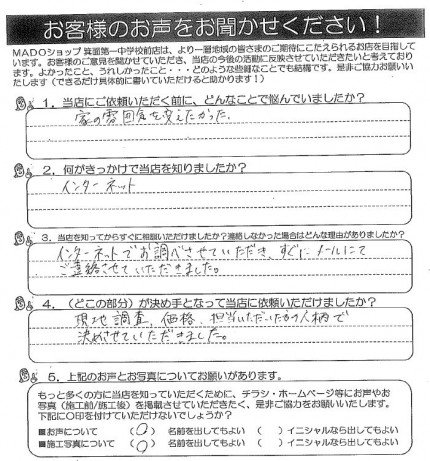 お客様のお声をお聞かせください！
MADOショップ 箕面第一中学校前店は、より一層地域の皆さまのご期待にこたえられるお店を目指して
います。お客様のご意見を聞かせていただき、当店の今後の活動に反映させていただきたいと考えており
ます。よかったこと、うれしかったこと・・・どのような些細なことでも結構です。是非ご協力お願いい
たします（できるだけ具体的に書いていただけると助かります！）
1．当店にご依頼いただく前に、どんなことで悩んでいましたか？
家の雰囲気を変えたかった。
2．何がきっかけで当店を知りましたか？
インターネット
3．当店を知ってからすぐに相談いただけましたか？連絡しなかった場合はどんな理由がありましたか？
インターネットでお調べさせていただき、すぐにメールにて
ご連絡させていただきました。
4．（どこの部分）が決め手となって当店に依頼いただけましたか？
現地調査、価格、担当いただいた方の人柄で
決めさせていただきました。
5．上記のお声とお写真についてお願いがあります。
もっと多くの方に当店を知っていただくために、チラシ・ホームページ等にお声やお
写真（施工前/施工後）を掲載させていただきたく、是非ご協力をお願いいたします。
下記に〇印を付けていただけないでしょうか？
■お声について （〇） 名前を出してもよい （ ）イニシャルなら出してもよい
■施工写真について （〇） 名前を出してもよい （ ）イニシャルなら出してもよい